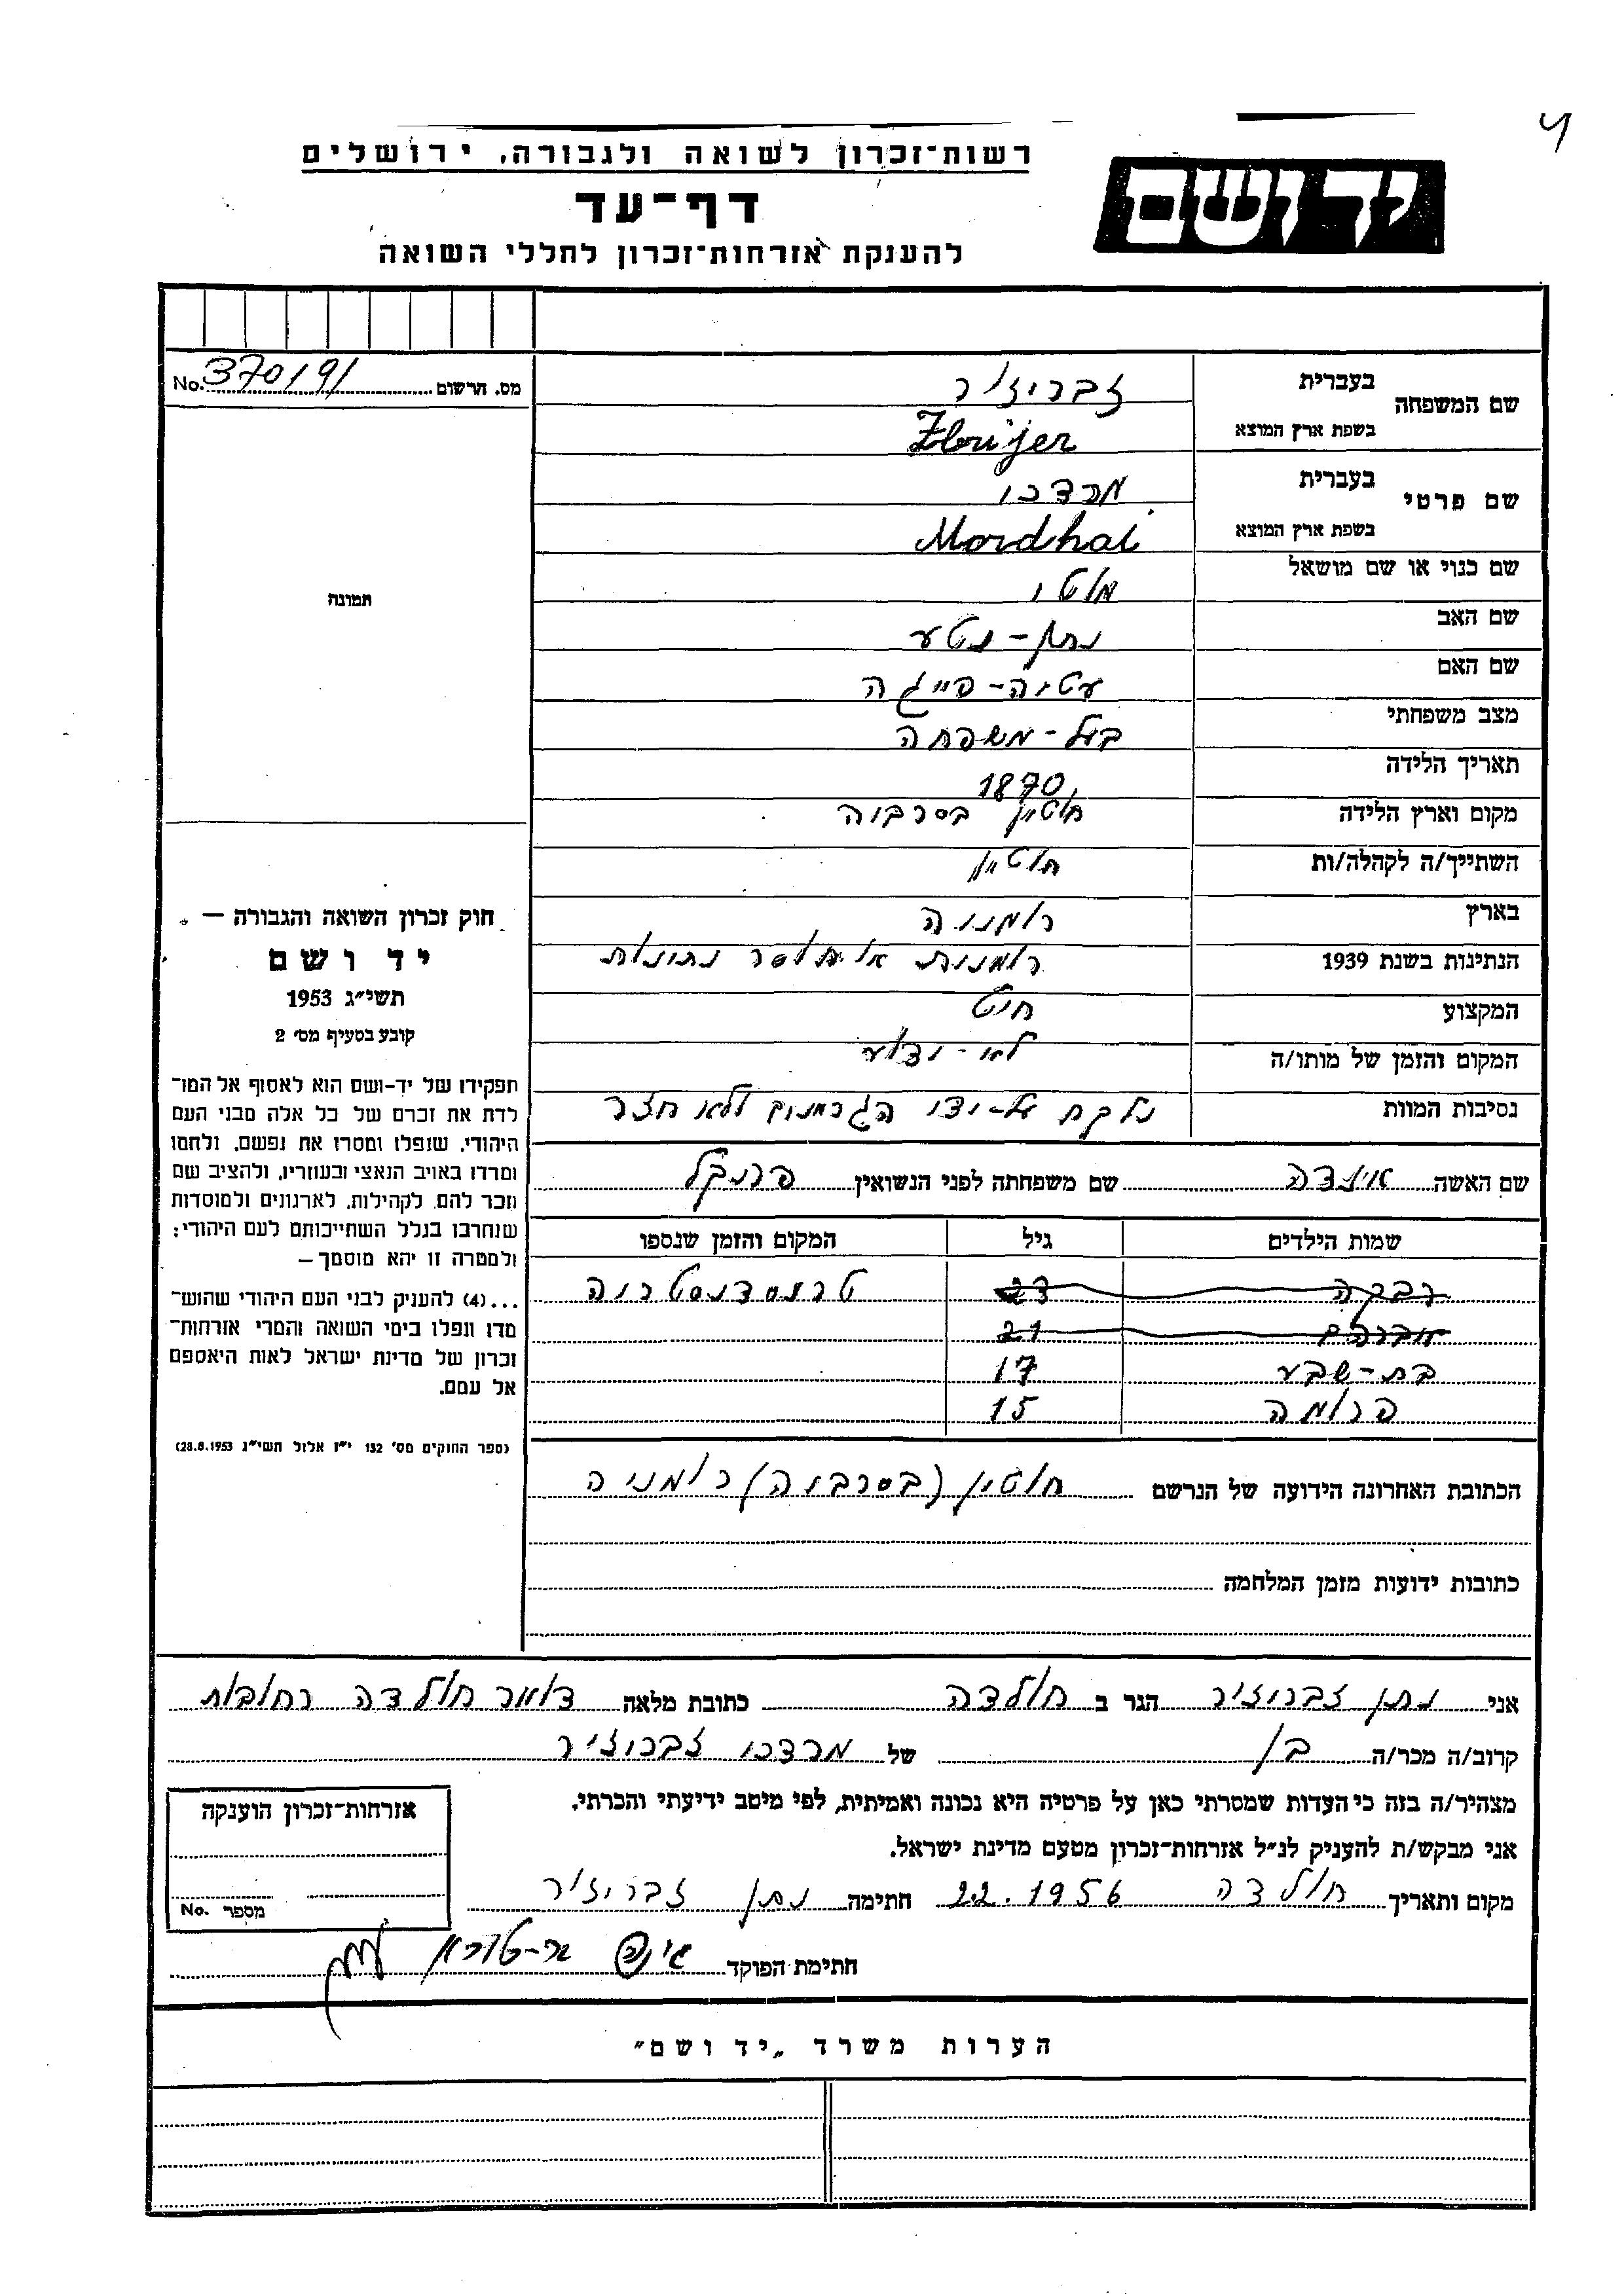 ч
רשות־זכרון לשואה ולגבורה, ירושלים
יד ושם
דף־עד
להענקת אזרחות־זכרון לחללי השואה
מס. הרשום No. 370191
תמונה
שם המשפחה בעברית זבריז'ר
בשפת ארץ המוצא Zbrijer
שם פרטי בעברית מרדכי
בשפת ארץ המוצא Mordhai
שם כנוי או שם מושאל מוטי
שם האב נתן-נטע
שם האם עטיה-פייגה
מצב משפחתי בעל-משפחה
תאריך הלידה 1870
מקום וארץ הלידה חוטין בסרביה
השתייך/ה לקהלה/ות חוטין
בארץ רומניה
הנתינות בשנת 1939 רומנית או חוסר נתינות
המקצוע חיט
המקום והזמן של מותו/ה לא-ידוע
נסיבות המוות נלקח על-ידי הגרמנים ולא חזר
שם האשה שם משפחתה לפני הנשואין פרנקל
שמות הילדים גיל המקום והזמן שנספו
רבקה 23 טרנסדניסטריה
אברהם 21
בת-שבע 17
פרומה 15
הכתובת האחרונה הידועה של הנרשם חוטין (בסרביה) רומניה
כתובות ידועות מזמן המלחמה
חוק זכרון השואה והגבורה —
יד ושם
תשי״ג 1953
קובע בסעיף מס׳ 2
תפקידו של יד-ושם הוא לאסוף אל המו־
לדת את זכרם של כל אלה מבני העם
היהודי, שנפלו ומסרו את נפשם, ולחמו
ומרדו באויב הנאצי ובעוזריו, ולהציב שם
וזכר להם, לקהילות, לארגונים ולמוסדות
שנחרבו בגלל השתייכותם לעם היהודי;
ולמטרה זו יהא מוסמך —
...(4) להעניק לבני העם היהודי שהוש־
מדו ונפלו בימי השואה והמרי אזרחות־
זכרון של מדינת ישראל לאות היאספם
אל עמם.
(ספר החוקים מס׳ 132 י״ז אלול תשי״ג 28.8.1953)
אני נתן זבריז'ר הגר ב חולדה כתובת מלאה דואר חולדה רחובות
קרוב/ה מכר/ה בן של מרדכי זבריז'ר
מצהיר/ה בזה כי העדות שמסרתי כאן על פרטיה היא נכונה ואמיתית, לפי מיטב ידיעתי והכרתי.
אני מבקש/ת להעניק לנ״ל אזרחות־זכרון מטעם מדינת ישראל.
מקום ותאריך חולדה 22.1956 חתימה נתן זבריז'ר
חתימת הפוקד
אזרחות־זכרון הוענקה
מספר No.
הערות משרד „יד ושם״